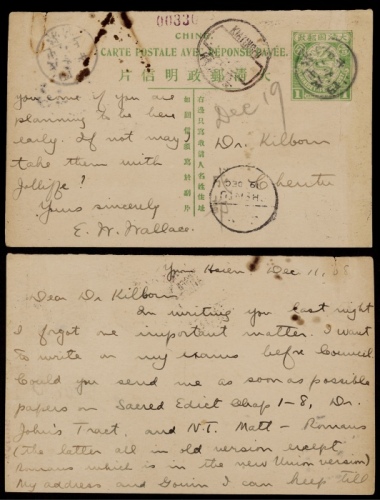 00330
CHINE
CARTE POSTALE AVEC RÉPONSE PAYÉE.
大清郵政明信片
you come if you are
planning to be here
early. If not may I
take them with
Jolliffe?
Yours sincerely
E. W. Wallace.
Dec 19
Dr. Kilborn
Chentu
Hsien Dec 11,
Dear Dr Kilborn
In writing you last night
I forgot one important matter. I want
to write on my exams before Council
Could you send me as soon as possible
papers on Sacred Edict Chap 1-8, Dr.
John's Tract, and N.T. Matt - Romans
(the latter all in old version except
Romans which is in the new Union version)
My address and Gouin I can keep till